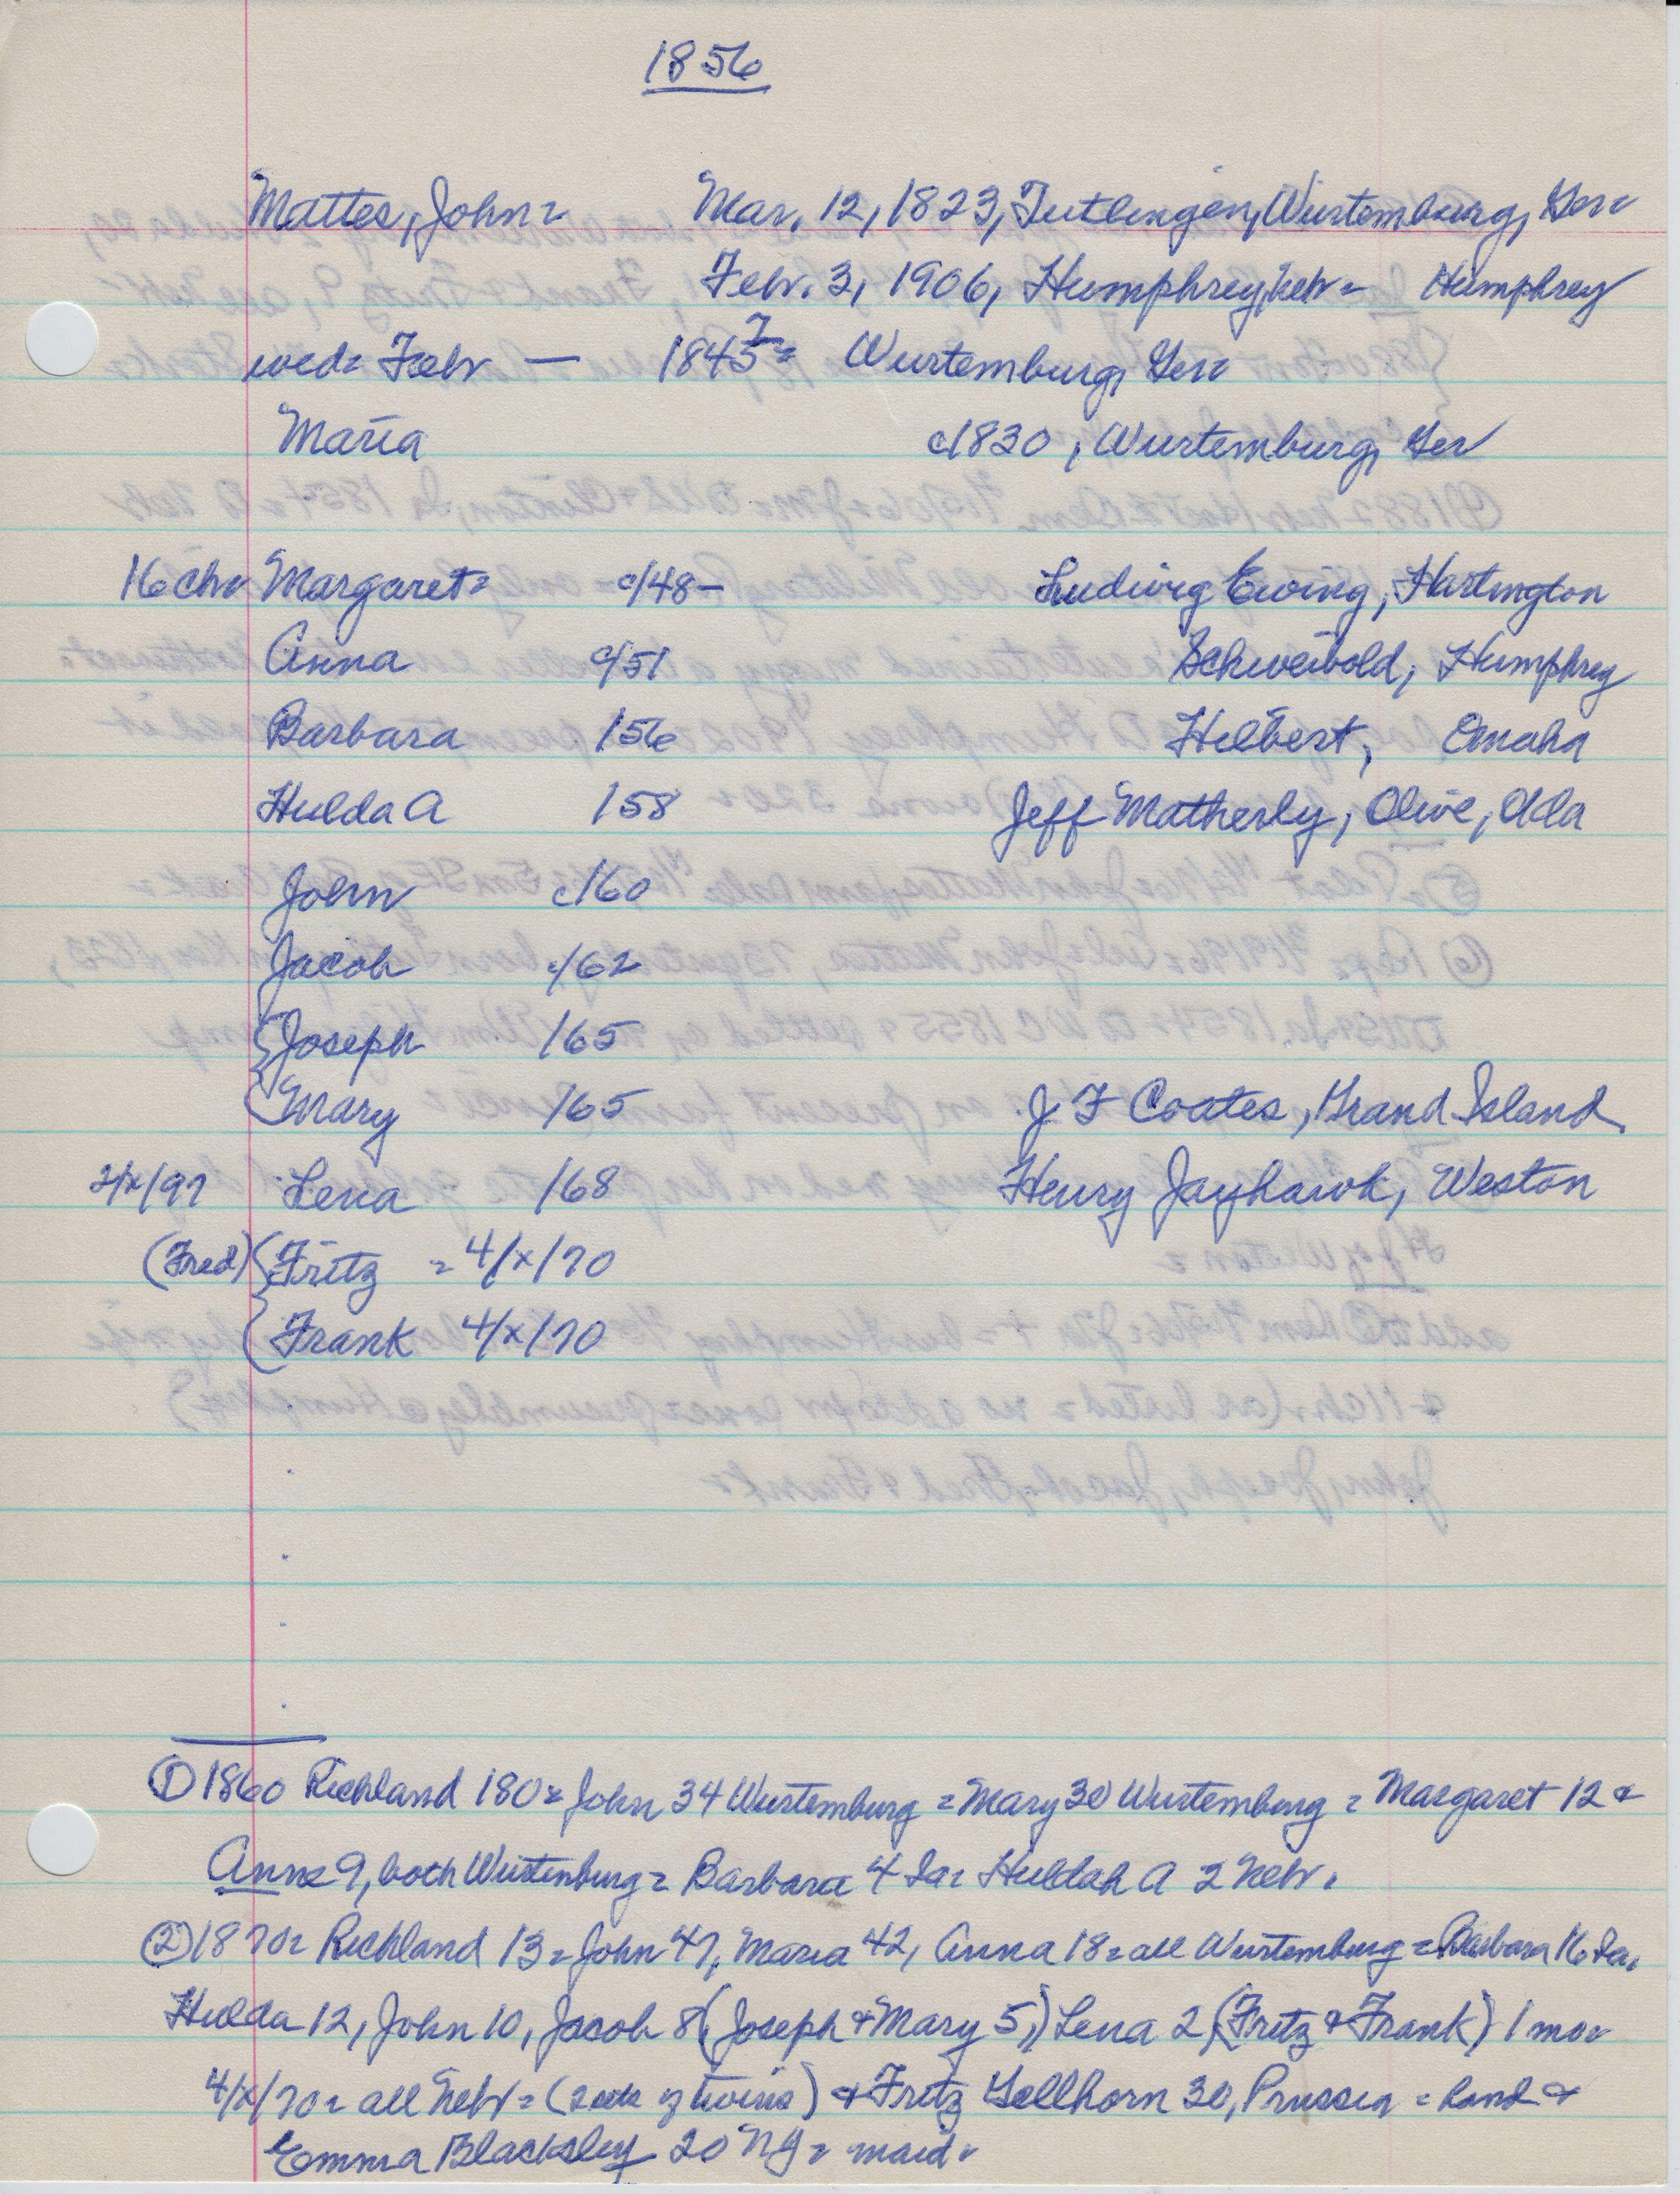 1856
Mattes, John = Mar. 12, 1823, Tutlingen, Wurtemburg, Ger =
Febr. 3, 1906, Humphrey, Nebr = Humphrey
wed = Febr — 1845 7 = Wurtemburg, Ger =
Maria c1830, Wurtemburg, Ger
16 chr Margaret = c/48 – Ludwig Ewing, Hartington
Anna c/51 Schweibold, Humphrey
Barbara /56 Hilbert, Omaha
Hulda A /58 Jeff Matherly, Olive, Okla
John c/60
Jacob /62
Joseph /65
Mary /65 J F Coates, Grand Island
2/x/97 Lena /68 Henry Jayhawk, Weston
(Fred) Fritz = 4/x/70
Frank 4/x/70
① 1860 Richland 180 = John 34 Wurtemburg = Mary 30 Wurtemburg = Margaret 12 &
Anna 9, both Wurtenburg = Barbara 4 Ia = Huldah A 2 Nebr.
② 1870 = Richland 13 = John 47, Maria 42, Anna 18 = all Wurtemburg = Barbara 16 Ia,
Hulda 12, John 10, Jacob 8, (Joseph & Mary 5,) Lena 2, (Fritz & Frank) 1 mo =
4/x/70 = all Nebr = (2 sets of twins) & Fritz Gellhorn 30, Prussia = hand &
Emma Blacksley 20 NY = maid =